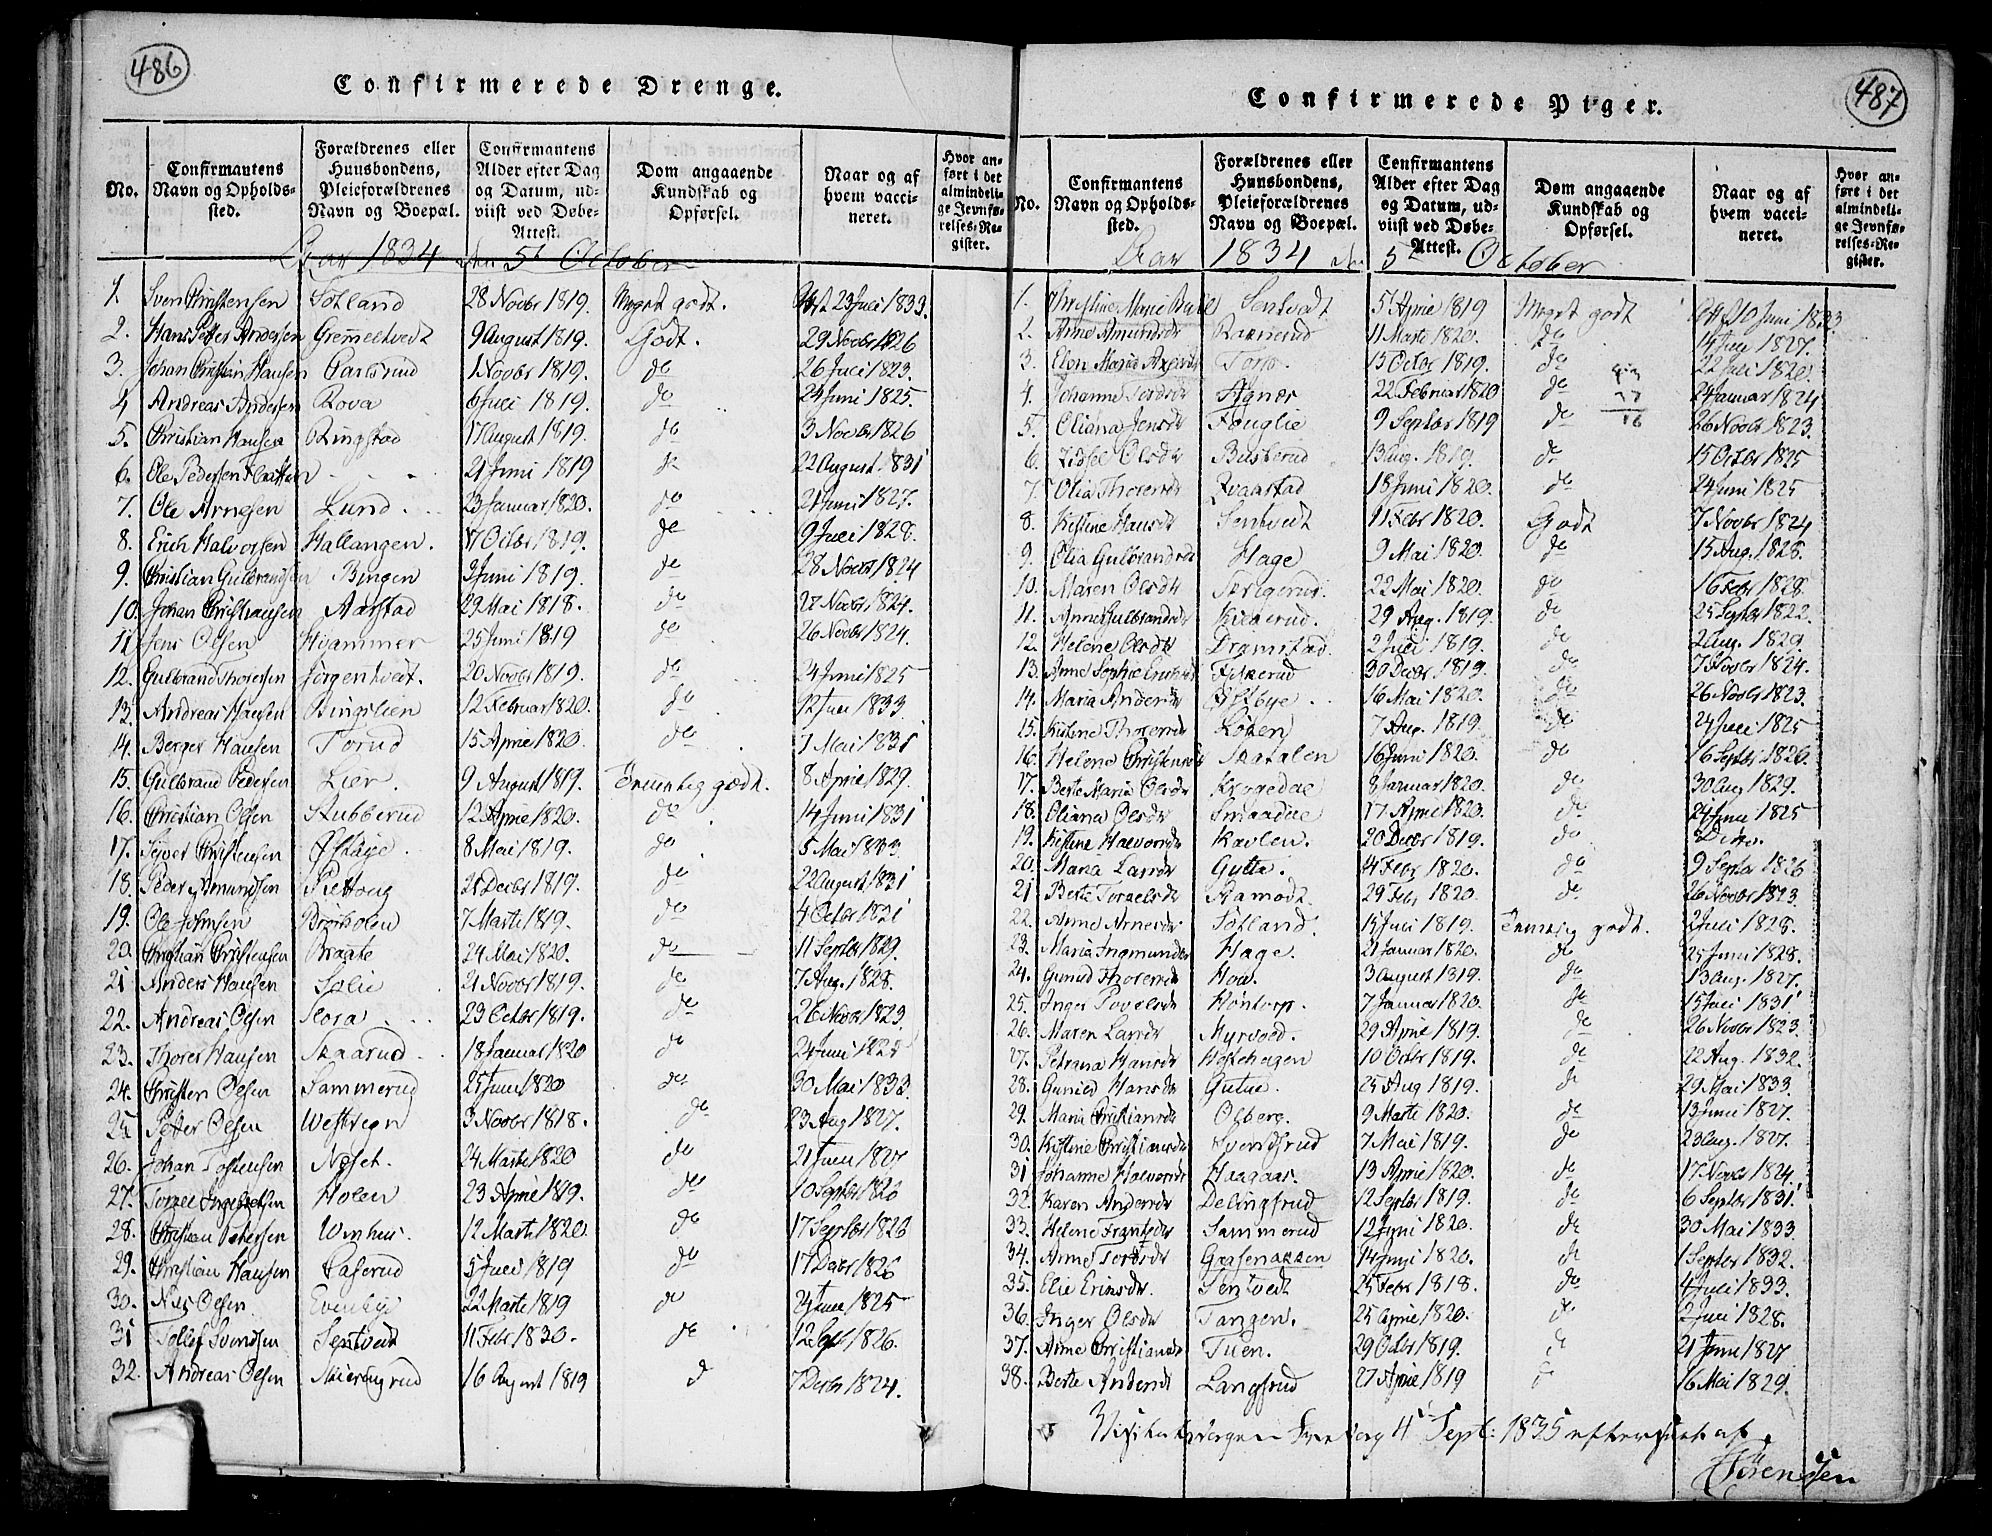 486
Confirmerede Drenge.
No.
Confirmantens Navn og Opholdssted.
Forældrenes eller Huusbondens, Pleieforældrenes Navn og Boepæl.
Confirmantens Alder efter Dag og Datum, udviist ved Døbe-Attest.
Dom angaaende Kundskab og Opførsel.
Naar og af hvem vaccineret.
Hvor anført i det almindelige Jevnførelses-Register.
Aar 1834 den 5t October
1. Sven Christensen Totland 28 Novbr 1819. Meget godt. 23 Juli 1833.
2. Hans Petter Andersen Gremeltvedt 9 August 1819. Godt. 29 Novbr 1826
3. Johan Christian Hansen 1 Novbr 1819. do 26 Juli 1823.
4 Andreas Andersen Rova 6 Juli 1819. do 24 Juni 1825.
5. Christian Hansen Ringstad 17 August 1819. do 3 Novbr 1826
6. Ole Pedersen 21 Juni 1819 do 22 August 1831
7. Ole Arnesen Lund 23 Januar 1820. do 21 Juni 1827.
8. Erich Halvorsen Hallangen. 17 Octbr 1819. do 9 Juli 1828.
9. Christian Gulbrandsen Bingen 3 Juni 1819. do 28 Novbr 1824
10. Johan Aarstad 29 Mai 1818. do 27 Novbr 1824.
11 Jens Olsen Hjammer 25 Juni 1819 do 26 Novbr 1824.
12. Gulbrand Thoresen Jørgentvedt. 20 Novbr 1819. do 24 Juni 1825
13. Andreas Hansen Bingslien 12 Februar 1820. do 12 Juni 1833.
14. Berger Hansen Torud 15 April 1820. do 1 Mai 1831
15. Gulbrand Pedersen Lier. 9 August 1819. Temmelig godt. 8 April 1829.
16. Christian Olsen Stubberud 12 April 1820. do 14 Juni 1831
17. Syver Christensen 8 Mai 1819. do 5 Mai 1833.
18. Peder Amundsen 21 Decbr 1819. do 22 August 1831
19. Ole Johnsen 7 Marts 1819. do 4 Octbr 1821
20. Christian Christensen Braate 24 Mai 1820. do 11 Septbr 1829.
21 Anders Hansen Solie 21 Novbr 1819. do 7 Aug. 1828.
22. Andreas Olsen Flora 23 Octbr 1819. do 26 Novbr 1823.
23. Thorer Hansen Skaarud 18 Januar 1820 do 24 Juni 1825
24. Christen Olsen Sammerud 25 Juni 1820 do 30 Mai 1833.
25 Petter Olsen Westregn 3 Novbr 1818. do 23 Aug 1827.
26. Johan Tostensen Neset. 24 Marts 1820 do 21 Juni 1827
27. Holen 23 April 1819. do 10 Septbr 1826
28. Christian Pedersen Winhus. 12 Marts 1820. do 17 Septbr 1823
29. Christian Hansen Paserud 5 Juli 1819 do 17 Decbr 1826
30. Nils Olsen. Evenbye 22 Marts 1819 do 24 Juni 1825
31 Tollef Svendsen Sentvedt 11 Febr 1830. do 12 Sept 1826.
32. Andreas Olsen 16 August 1819 d 7 Decbr 1824.
487
Confirmerede Piger.
No.
Confirmantens Navn og Opholdssted.
Forældrenes eller Huusbondens, Pleieforældrenes Navn og Boepæl.
Confirmantens Alder efter Dag og Datum, udviist ved Døbe-Attest.
Dom angaaende Kundskab og Opførsel.
Naar og af hvem vaccineret.
Hvor anført i det almindelige Jevnførelses-Register.
Aar 1834 den 5te October
1. Christine Marie Sentvedt 5 April 1819 Meget godt 10 Juni 1823
2. Anne Amundsdr 11 Marts 1820. do 14 Juli 1827.
3. Elen Maria Torp. 15 Octbr 1819. do 22 Juli 1820.
4. Johanne Tordsdr Agnæs 22 Februar 1820 do 24 Januar 1824
5. Oliana Jensdr Fouglie 9 Septbr 1819 do 26 Novbr 1823.
6. Zidsel Olsdr Buskerud 13 Aug. 1819. do 15 Octbr 1825
7. Olia Thoresdr Kvaastad 18 Juni 1820. do 24 Juni 1825
8. Kistine Hansdr Sentvedt 11 Febr 1820. Godt 7 Novbr 1824
9. Olia Gulbrandsdr Hage 9 Mai 1820. do 15 Aug. 1828.
10. Maren Olsdr 22 Mai 1820. do 16 Febr 1828.
11. Anne Gulbrandsdr 29 Aug. 1819. do 25 Septbr 1822.
12. Helene Olsdr Dramstad 2 Juli 1819. do 2 Aug. 1829.
13. Anne Sophie Fiskerud 30 Decbr 1819. do 7 Novbr 1824.
14. Maria Andersdr Østbye 16 Mai 1820. do 26 Novbr 1823.
15. Kistine Thoresdr Løken 7 Aug. 1819. do 24 Juni 1825
16. Helene Christensdr Skatalen 16 Juni 1820. do 16 Septbr 1826.
17. Berte Maria Olsdr Krogedal 8 Januar 1820. do 30 Aug 1829.
18. Oliana Olsdr 17 April 1820. do 24 Juni 1825
19. Kistine Halvorsdr Kavlen. 20 Decbr 1819. do Dito.
20. Maria Larsdr Gutta. 4 Febr 1820. do 9 Septbr 1826
21 Berte Torgelsdr Ramodt. 29 Febr 1820. do 26 Novbr 1823.
22. Anne Arnesdr Totland. 15 Juli 1819. Temmelig godt. 2 Juli 1828.
23. Maria Ingmundsdr Hage. 21 Januar 1820. do 25 Juni 1828.
24. Gunild Thoresdr Hou. 3 August 1819. do 13 Aug. 1827.
25. Inger Povelsdr Høntorp. 7 Januar 1820. do 15 Juli 1831
26. Maren Larsdr Myrvold. 29 April 1819. do 26 Novbr 1823.
27. Petrana Hansdr Holtehagen 10 Octbr 1819. do 22 Aug. 1832.
28. Gunild Hansdr Gutue. 25 Aug 1819. do 29 Mai 1833.
29. Maria Christiansdr Olberg. 9 Marts 1820. do 13 Juni 1827.
30. Kistine Christiansdr Svensrud 7 Mai 1819. do 23 Aug. 1827.
31 Johanne Halvorsdr Haagaar. 13 April 1820. do 17 Novbr 1824.
32. Karen Andersdr Delingsrud 12 Septbr 1819. do 6 Septbr 1831
33. Helene Frantsdr Sammerud 12 Juni 1820. do 30 Mai 1833.
34. Anne Tordsdr Grasenakken 14 Juni 1820. do 1 Septbr 1832.
35. Elie Ericsdr. Sentvedt 25 Febr 1818. do 4 Juli 1833.
36. Inger Olsdr Tangen. 25 April 1820. do 2 Juli 1828.
37. Anne Christiansdr Tuen. 29 Octbr 1819. do 21 Juni 1827
38. Berte Andersdr Langsrud 27 April 1819 do 16 Mai 1829.
4 Sept: 1835 efterseet af
Sørensen